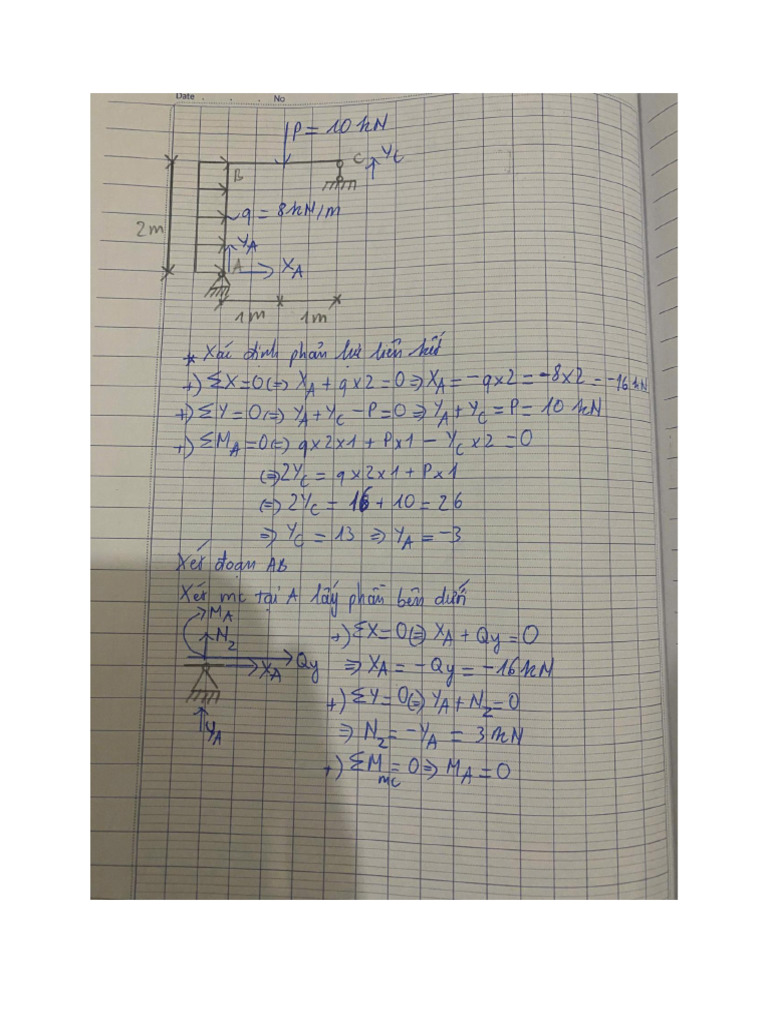 Date . . . No
P = 10 kN
B
C
Y_C
q = 8 kN/m
2m
Y_A
A
X_A
1m
1m
* Xác định phản lực liên kết
+) ΣX=0 (=) X_A + q×2 = 0 => X_A = -q×2 = -8×2 = -16 kN
+) ΣY=0 (=) Y_A + Y_C - P = 0 => Y_A + Y_C = P = 10 kN
+) ΣM_A = 0 (=) q×2×1 + P×1 - Y_C×2 = 0
(=) 2Y_C = q×2×1 + P×1
(=) 2Y_C = 16 + 10 = 26
=> Y_C = 13 => Y_A = -3
Xét đoạn AB
Xét mc tại A lấy phần bên dưới
M_A
N_2
Qy
X_A
Y_A
+) ΣX=0 (=) X_A + Qy = 0
=> X_A = -Qy = -16 kN
+) ΣY=0 (=) Y_A + N_2 = 0
=> N_2 = -Y_A = 3 kN
+) ΣM_mc = 0 => M_A = 0